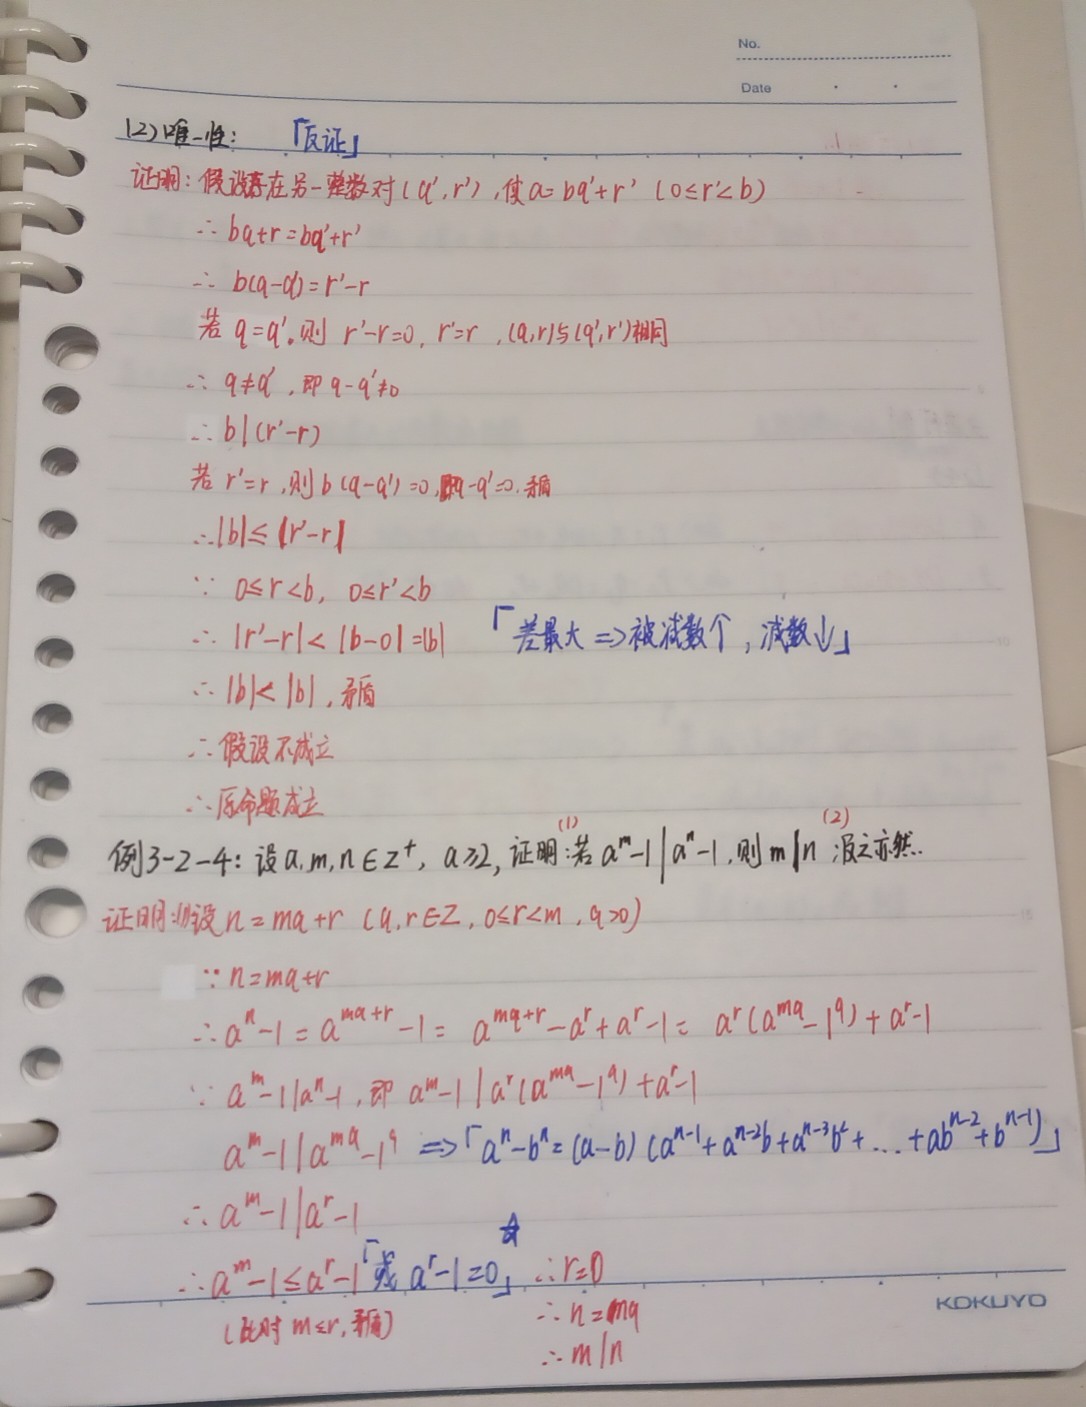 No.
Date
(2)唯一性: 「反证」
证明:假设存在另一整数对(q′,r′),使a=bq′+r′ (0≤r′<b)
∴bq+r=bq′+r′
∴b(q-q′)=r′-r
若q=q′,则r′-r=0,r′=r,(q,r)与(q′,r′)相同
∴q≠q′,即q-q′≠0
∴b|(r′-r)
若r′=r,则b(q-q′)=0,即q-q′=0,矛盾
∴|b|≤|r′-r|
∵0≤r<b, 0≤r′<b
∴|r′-r|<|b-0|=|b| 「差最大⇒被减数↑,减数↓」
∴|b|<|b|,矛盾
∴假设不成立
∴原命题成立
(1) (2)
例3-2-4:设a,m,n∈Z⁺, a≥2,证明:若aᵐ-1|aⁿ-1,则m|n;反之亦然.
证明:(1)设n=mq+r (q,r∈Z, 0≤r<m, q>0)
∵n=mq+r
∴aⁿ-1=a^{mq+r}-1=a^{mq+r}-aʳ+aʳ-1=aʳ(a^{mq}-1^q)+aʳ-1
∵aᵐ-1|aⁿ-1,即aᵐ-1|aʳ(a^{mq}-1^q)+aʳ-1
aᵐ-1|a^{mq}-1^q ⇒「aⁿ-bⁿ=(a-b)(a^{n-1}+a^{n-2}b+a^{n-3}b²+...+ab^{n-2}+b^{n-1})」
∴aᵐ-1|aʳ-1
∴aᵐ-1≤aʳ-1「或aʳ-1=0」☆ ∴r=0
(此时m≤r,矛盾) ∴n=mq
∴m|n
KOKUYO